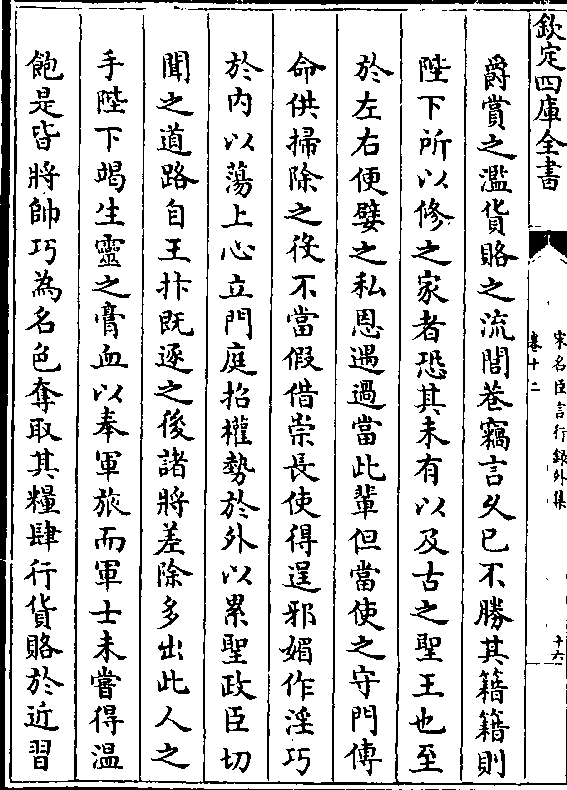 欽定四庫全書
宋名臣言行録外集
卷十二
十六
爵賞之濫貨賂之流閭巷竊言久已不勝其籍籍則
陛下所以修之家者恐其未有以及古之聖王也至
於左右便嬖之私恩遇過當此輩但當使之守門傳
命供掃除之役不當假借崇長使得逞邪媚作淫巧
於内以蕩上心立門庭招權勢於外以累聖政臣切
聞之道路自王抃既逐之後諸將差除多出此人之
手陛下竭生靈之膏血以奉軍旅而軍士未嘗得温
飽是皆將帥巧為名色奪取其糧肆行貨賂於近習